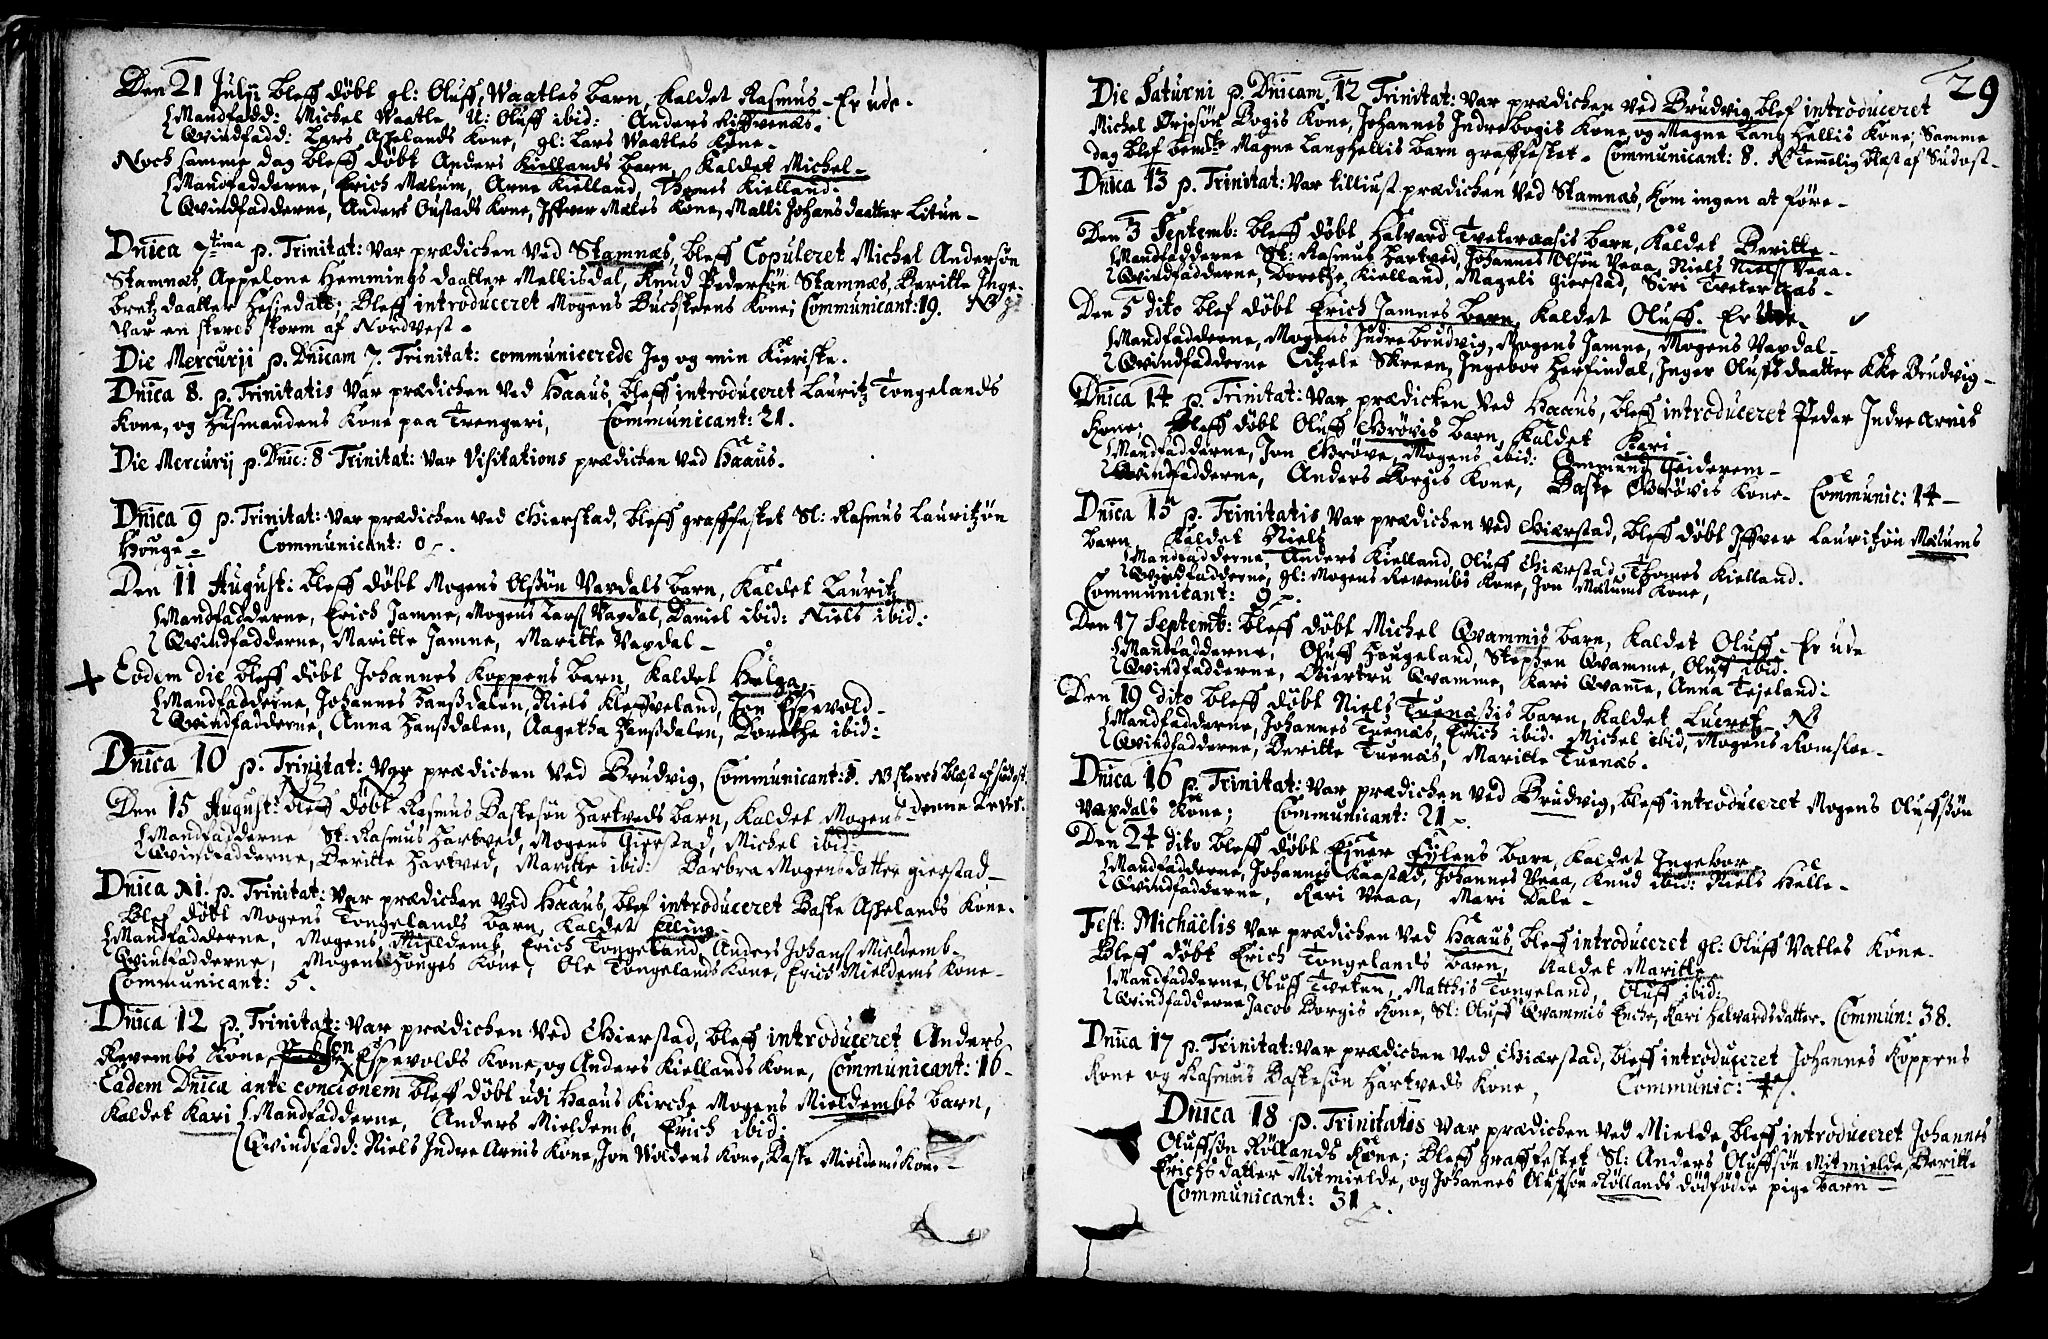 Den 21 Julij bleff döbt gl: Oluff Waatles barn, kaldet Rasmus - Er ude.
Mandfadd: Michel Waatle, U: Oluff ibid: Anders
Qvindfadd: Lars Aschelands Kone, gl: Lars Waatles Kone.
Noch samme dag bleff döbt Anders Kiellands barn, kaldet Michel -
Mandfadderne, Erich Mælum, Arne Kielland, Thomes Kielland.
Qvindfadderne, Anders Gustads Kone, Iffver Mæles Kone, Malli Johansdaatter Litun -
Dnica 7tima p. Trinitat: var prædichen ved Stamnæs, bleff Copuleret Michel Andersøn
Stamnæs, Appelone Hemmings daatter Mellisdal, Knud Pedersøn Stamnæs, Beritte Inge-
bretz daatter bleff introduceret Mogens Buchsteens Kone; Communicant: 19. NB
var en sterch storm af Nordvest -
Die Mercurij p. Dnicam 7. Trinitat: communicerede Jeg og min Kieriste.
Dnica 8. p. Trinitatis var prædichen ved Haaus, bleff introduceret Lauritz Tongelands
Kone, og Husmandens Kone paa Trengeri, Communicant: 21.
Die Mercurij p. Dnic: 8 Trinitat: var Visitations prædichen ved Haaus.
Dnica 9 p. Trinitat: var prædichen ved Gierstad, bleff grafffestet Sl: Rasmus Lauritzøn
Houge - Communicant: 0.
Den 11 August: bleff döbt Mogens Olssøn Vaxdals barn, kaldet Lauritz
Mandfadderne, Erich Jamne, Mogens Larss Vaxdal, Daniel ibid: Niels ibid:
Qvindfadderne, Maritte Jamne, Maritte Vaxdal -
Eodem die bleff döbt Johannes Koppens barn, kaldet Helga,
Mandfadderne, Johannes Hanssdalen, Niels Kleffveland, Jon Espevold -
Qvindfadderne, Anna Hanssdalen, Aagetha Hanssdalen, Dorethe ibid:
Dnica 10 p. Trinitat: var prædichen ved Brudvig, Communicant: 8. NB sterch blæst af südost
Den 15 August: bleff döbt Rasmus Baskesøn Hartveds barn, kaldet Mogens
Mandfadderne Sl: Rasmus Hartved, Mogens Gierstad, Michel ibid:
Qvindfadderne, Beritte Hartved, Maritte ibid: Barbra Mogensdatter gierstad -
Dnica XI. p. Trinitat: var prædichen ved Haaus, blef introduceret Baske Aschelands Kone.
Blef döbt Mogens Tongelands barn, kaldet Elling
Mandfadderne, Mogens Mieldemb, Erich Tongeland, Anders Johanss Mieldemb -
Qvindfadderne, Mogens Houges Kone, Ole Tongelands Kone, Erich Mieldems Kone -
Communicant: 5.
Dnica 12 p. Trinitat: var prædichen ved Gierstad, bleff introduceret Anders
Revembs Kone, Espevolds Kone, og Anders Kiellands Kone, Communicant: 16 -
Eadem Dnica ante concionem bleff döbt udi Haaus Kirche Mogens Mieldembs barn,
kaldet Kari Mandfadderne, Anders Mieldemb, Erich ibid:
Qvindfadd: Niels Indre Arnis Kone, Jon Woldens Kone, Baske Mieldems Kone -
29
Die Saturni p. Dnicam 12 Trinitat: var prædichen ved Brudvig, blef introduceret
Michel Kone, Johannes Indrebogis Kone, og Magne Lang Hellis Kone, Samme
dag blef bemte Magne Langhellis barn grafffestet - Communicant: 8. NB Temelig blæst af Südost -
Dnica 13 p. Trinitat: var tilliust prædichen ved Stamnæs, kom ingen at före -
Den 3 Septemb: bleff döbt Halvard Tveteraasis barn, kaldet Beritte -
Mandfadderne Sl: Rasmus Hartved, Johannes Olsøn Veaa, Niels Nielss Veaa -
Qvindfadderne, Dorethe Kielland, Mageli Gierstad, Siri Tveteraas -
Den 5 dito blef döbt Erich Jamnes barn, kaldet Oluff. Er ude.
Mandfadderne, Mogens Indre brudvig, Mogens Jamne, Mogens Vaxdal -
Qvindfadderne Citzele Skreen, Ingebor Herfindal, Inger Olufs daatter Brudvig -
Dnica 14 p. Trinitat: var prædicken ved Haaus, bleff introduceret Peder Indre Arnis
Kone; bleff döbt Oluff Grövis barn, kaldet Kari -
Mandfadderne, Jon Gröve, Mogens ibid:
Qvindfadderne, Anders Borgis Kone, Baske Grövis Kone - Communic: 14 -
Dnica 15 p. Trinitatis var prædichen ved Giærstad, bleff döbt Iffver Lauritzøn Mælums
barn kaldet Niels
Mandfadderne, Anders Kielland, Oluff Giærstad, Thomes Kielland.
Qvindfadderne, gl: Mogens Revembs Kone, Jon Mælums Kone,
Communicant: 9.
Den 17 Septemb: bleff döbt Michel Qvammis barn, kaldet Oluff - Er ude
Mandfadderne, Oluff Hougeland, Stephen Qvamme, Oluff ibid:
Qvindfadderne, Giertru Qvamme, Kari Qvame, Anna Tejeland:
Den 19 dito bleff döbt Niels Tuenæssis barn, kaldet Lucres - NB
Mandfadderne, Johannes Tuenæs, Erich ibid: Michel ibid, Mogens Romsloe -
Qvindfadderne, Beritte Tuenæs, Maritte Tuenæs.
Dnica 16 p. Trinitat: var prædichen ved Brudvig, bleff introduceret Mogens Oluffssøn
Vaxdals Kone; Communicant: 21.
Den 24 dito bleff döbt Ejner Fylens barn, kaldet Ingebor
Mandfadderne, Johannes Kaastad, Johannes Veaa, Knud ibid: Niels Helle -
Qvindfadderne, Kari Veaa, Mari Dale -
Fest: Michaëlis var prædichen ved Haaus, bleff introduceret gl: Oluff Vatles Kone -
Bleff döbt Erich Tongelands barn, kaldet Maritte
Mandfadderne, Oluff Tveten, Matthis Tongeland, Oluff ibid:
Qvindfadderne Jacob Borgis Kone, Sl: Oluff Qvammis Enche, Kari Halvardsdatter. Commun: 38.
Dnica 17 p. Trinitat: var prædichen ved Giærstad, bleff introduceret Johannes Koppens
Kone og Rasmus Baskesøn Hartveds Kone, Communic:
Dnica 18 p. Trinitatis var prædichen ved Mielde, bleff introduceret Johannes
Oluffsøn Röllands Kone; bleff grafffestet Sl: Anders Oluffsøn Mitmielde, Beritte
Erichs datter Mitmielde, og Johannes Olufsøn Röllands dödfödde pige barn -
Communicant: 31.